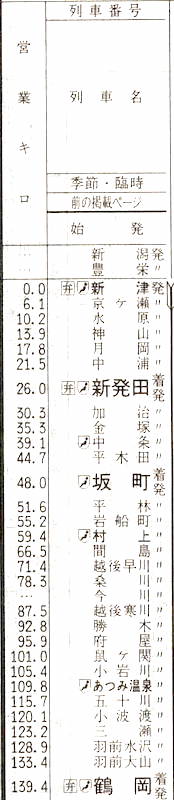 営業キロ
列車番号
列車名
季節・臨時
前の掲載ページ
始発
… 新潟発
… 豊栄〃
0.0 弁 新津発
6.1 京ケ瀬〃
10.2 水原〃
13.9 神山〃
17.8 月岡〃
21.5 中浦〃
26.0 弁 新発田着発
30.3 加治〃
35.3 金塚〃
39.1 中条〃
44.7 平木田〃
48.0 坂町着発
51.6 平林〃
55.2 岩船町〃
59.4 村上〃
66.5 間島〃
71.4 越後早川〃
78.3 桑川〃
… 今川〃
87.5 越後寒川〃
92.8 勝木〃
95.9 府屋〃
101.0 鼠ケ関〃
105.4 小岩川〃
109.8 あつみ温泉〃
115.7 五十川〃
120.1 小波渡〃
123.2 三瀬〃
128.9 羽前水沢〃
133.4 羽前大山〃
139.4 弁 鶴岡着発